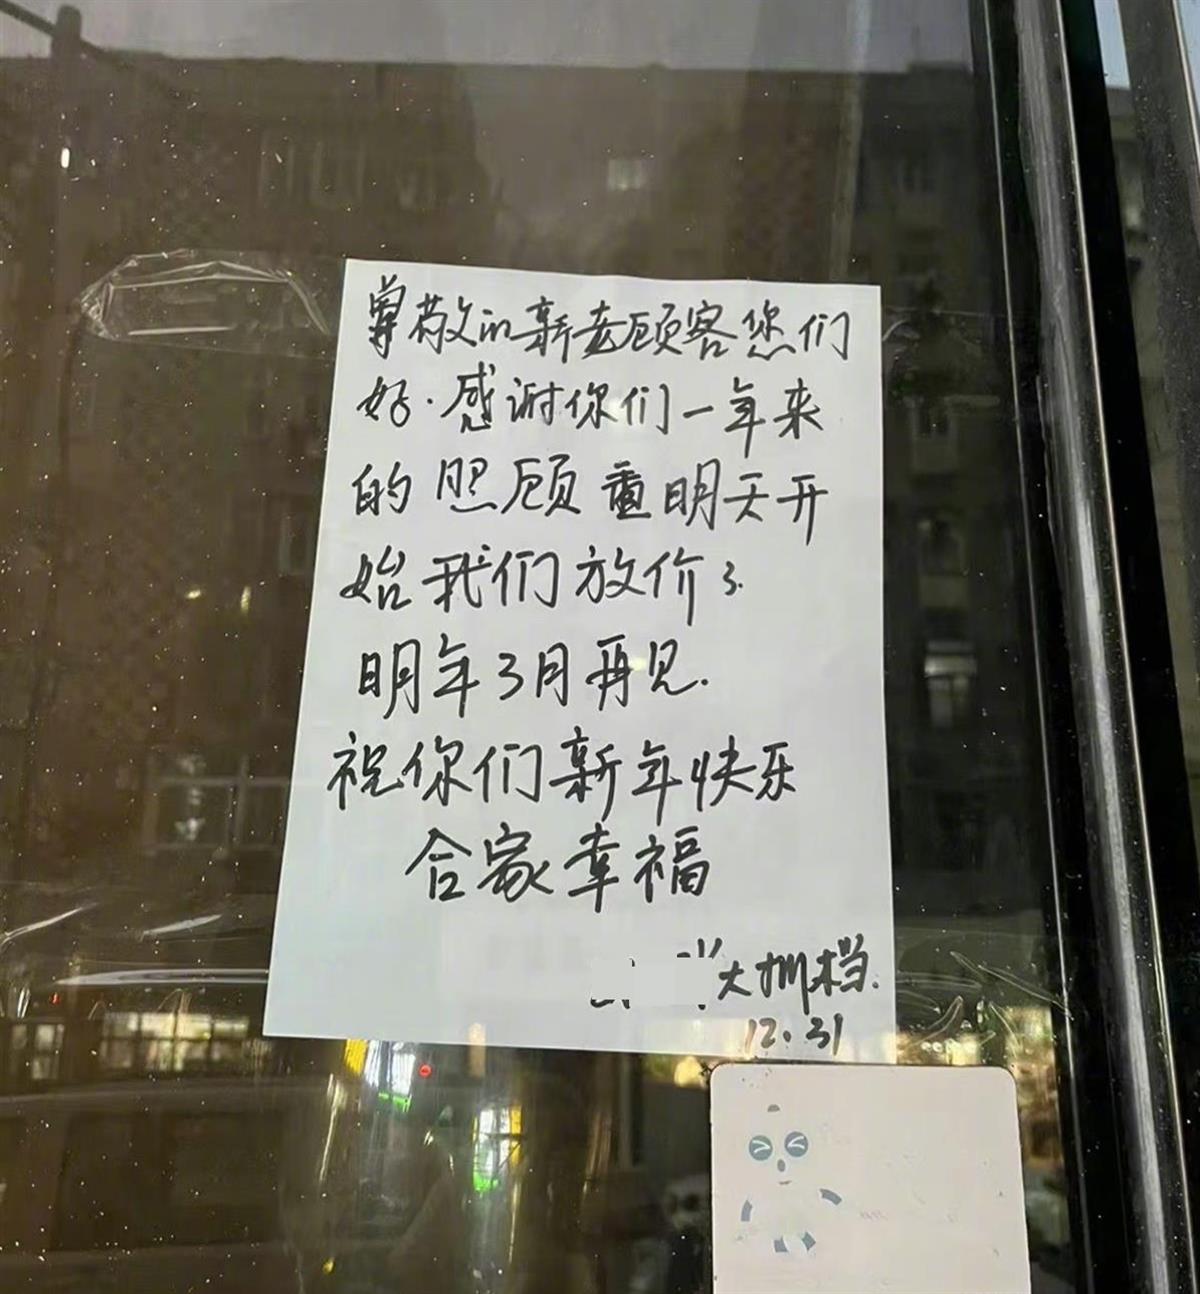 尊敬的新老顾客您们
好.感谢你们一年来
的照顾重明天开
始我们放价了.
明年3月再见.
祝你们新年快乐
合家幸福
大排档.
12.31